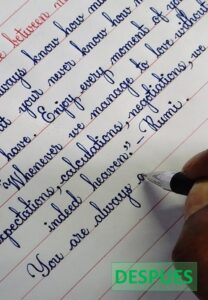 e between m
always know how mu
at your never know how m
have. Enjoy every moment of yo
"Whenever we manage to love without
expectations, calculations, negotiations, we
indeed heaven." - Rumi.
You are always a
DESPUES